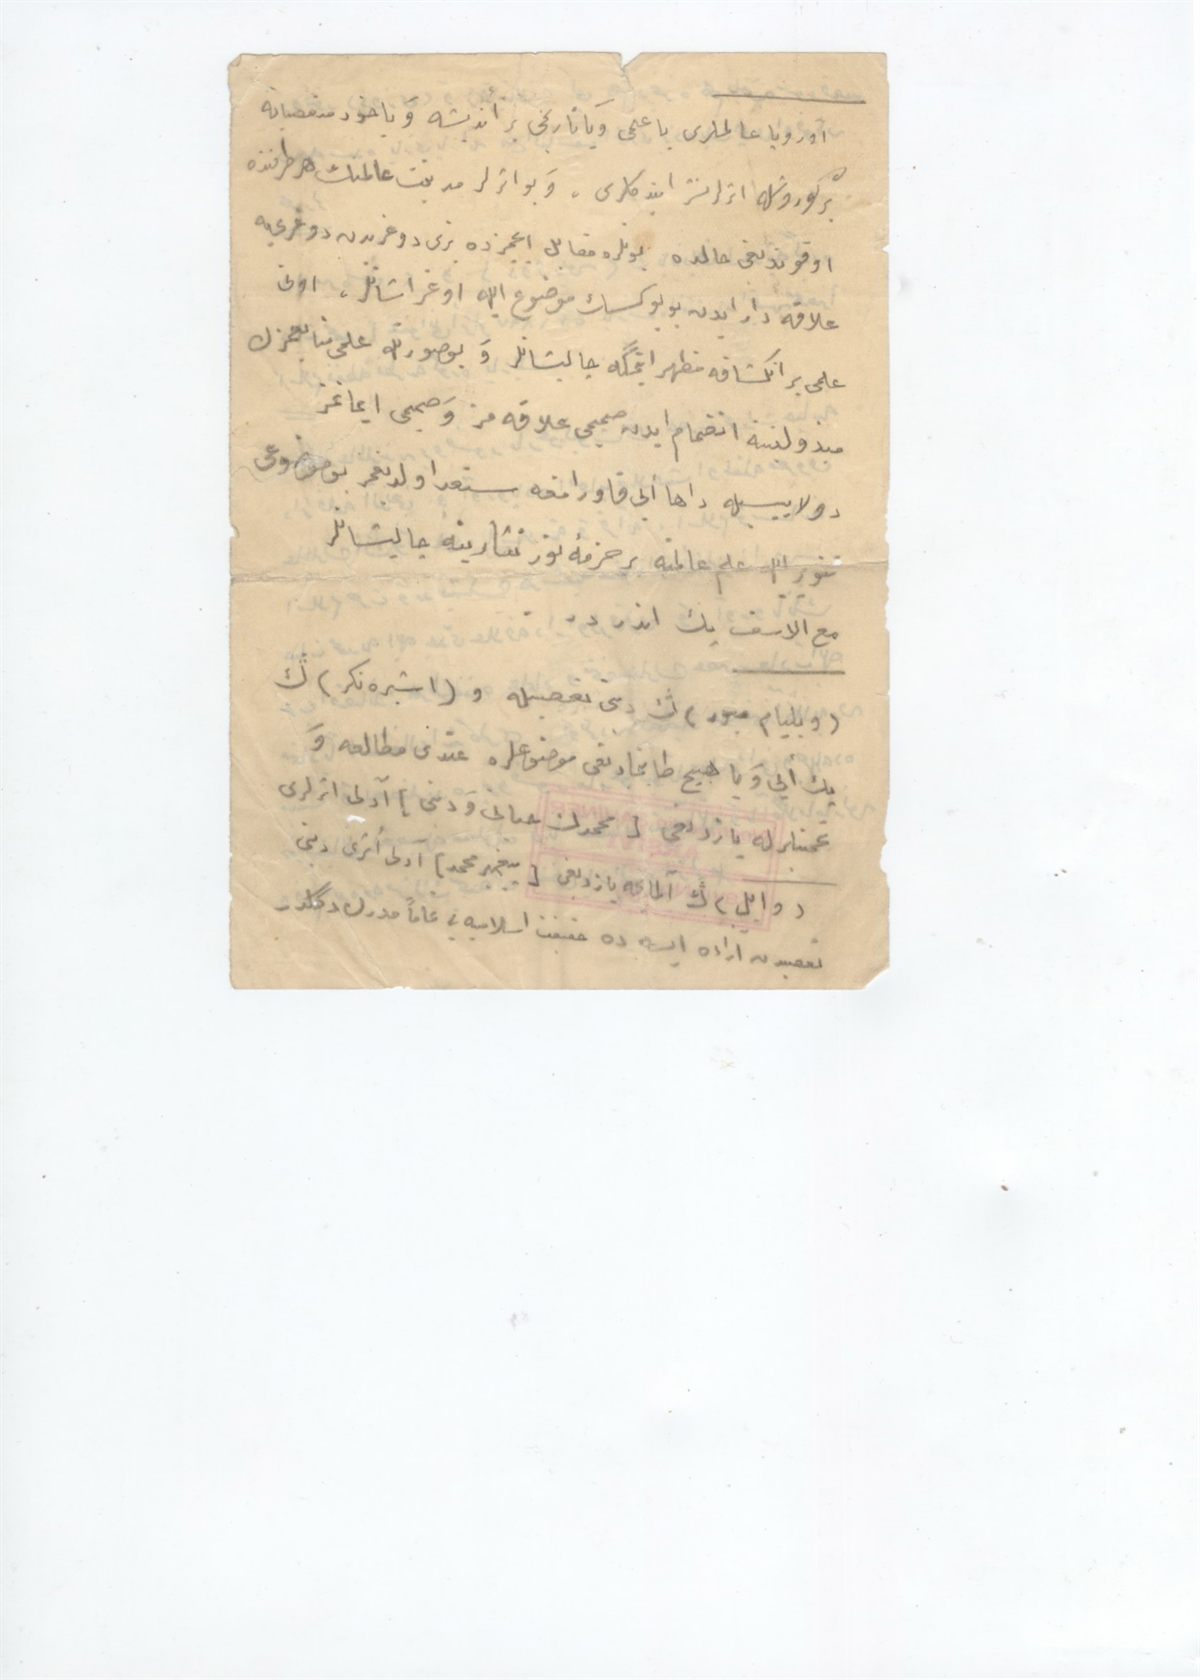 اوروپا عالملری یا علمی وَیا تاریخی بر اندیشه وَیاخود متعصبانه
بر کوروشله اثرلر نشر ایتدکلری ، وَ بو اثرلر مدنیت عالمنك هر طرفنده
اوقوندیغی حالده بونلره مقابل ایچمزده بزی دوغریدن دوغرییه
علاقه دار ایدن بو یوكسك موضوع ایله اوغراشانلر ، اونی
علمی بر انکشافه مظهر ایتمگه چالیشانلر وَ بوصورتله علمی
انضمام ایدن صمیمی علاقه مز وَ صمیمی ایمانمز
دولاییسیله داها ایی قاورامغه مستعد اولدیغمز بو موضوعی
تنویر ایله علم عالمنه بر حزمهٔ نور نثارینه چالیشانلر
مع الاسف پك اندر در .
( ویلیام میور ) ڭ دینی تعصبیله و ( اشپره نکر ) ڭ
پك ایی وَیا هیچ طانیمادیغی موضوعلره عندی مطالعه وَ
یازدیغی [ محمدك حیاتی وَ دینی ] آدلی اثرلری
( وایل ) ڭ آلمانجه یازدیغی [ پیغمبر محمد ] آدلی أثری دینی
تعصبدن آزاده ایسه ده حقیقت اسلامیه یی تماماً مدرك دگلدر